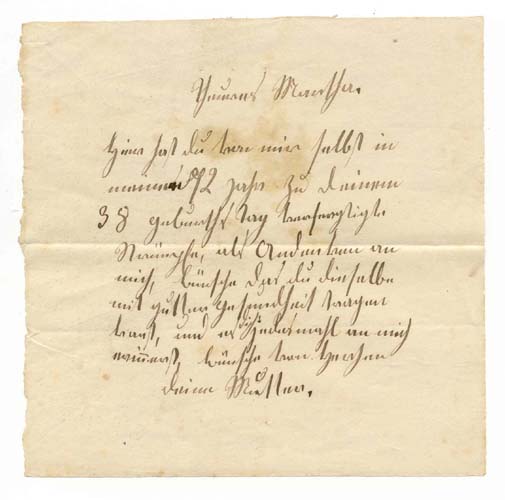 Theures Martha.
Hier hast du von mir selbst in
meinen 72 Jahr zu deinem
38 geburths tag verfertigte
Strümpfe, als Andenken an
mich, wünsche das du dieselbe
mit gutter gesundheit tragen
kanst, und es dich jedesmahl an mich
erinnerst, wünsche von Herzen
deine Mutter.